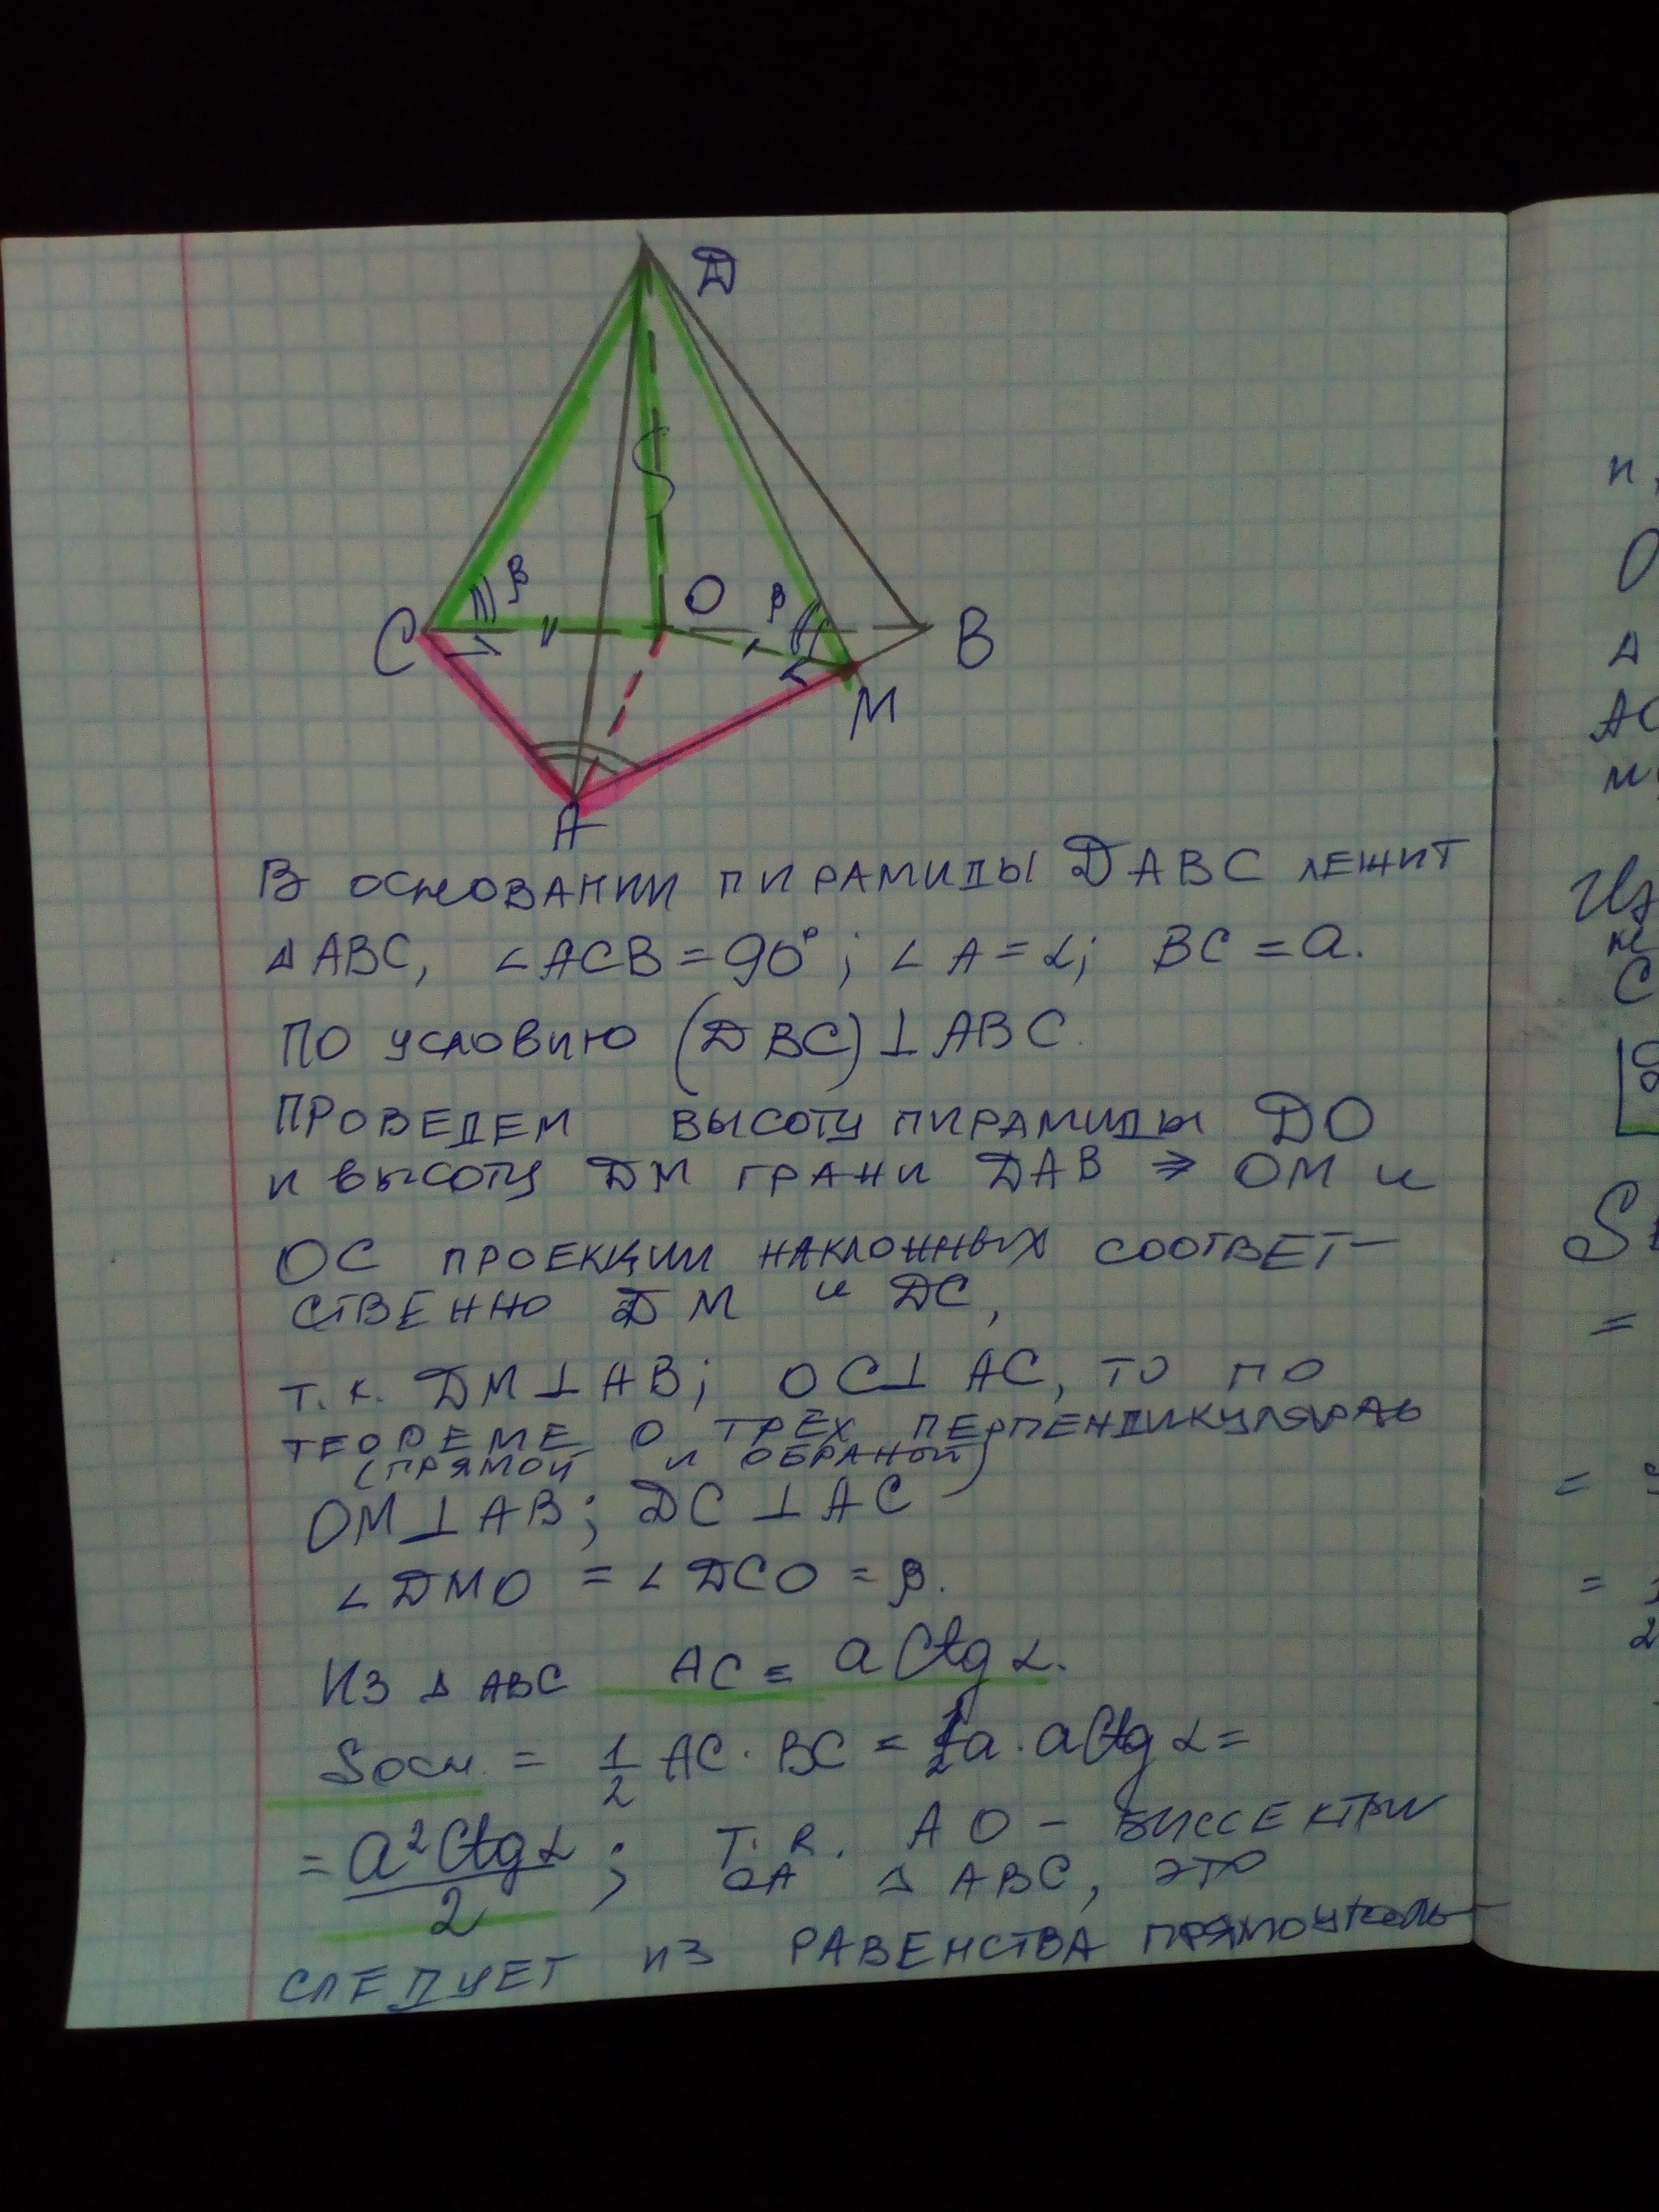 D
β
O
β
C
B
M
A
В ОСНОВАНИИ ПИРАМИДЫ DABC ЛЕЖИТ
Δ ABC, ∠ACB = 90°; ∠ A = α; BC = a.
ПО УСЛОВИЮ (DBC) ⊥ ABC.
ПРОВЕДЕМ ВЫСОТУ ПИРАМИДЫ DO
И ВЫСОТУ DM ГРАНИ DAB ⇒ OM и
OC ПРОЕКЦИИ НАКЛОННЫХ СООТВЕТ-
СТВЕННО DM и DC,
Т.К. DM ⊥ AB; OC ⊥ AC, ТО ПО
ТЕОРЕМЕ О ТРЁХ ПЕРПЕНДИКУЛЯРАХ
(ПРЯМОЙ И ОБРАНОЙ)
OM ⊥ AB; DC ⊥ AC
∠ DMO = ∠ DCO = β.
ИЗ Δ ABC AC = a Ctg α.
Sосн. = 1/2 AC · BC = 1/2 a · a Ctg α =
= a² Ctg α / 2 ; Т.К. AO – БИССЕКТРИ
СА Δ ABC, ЭТО
СЛЕДУЕТ ИЗ РАВЕНСТВА ПРЯМОУГОЛЬ-